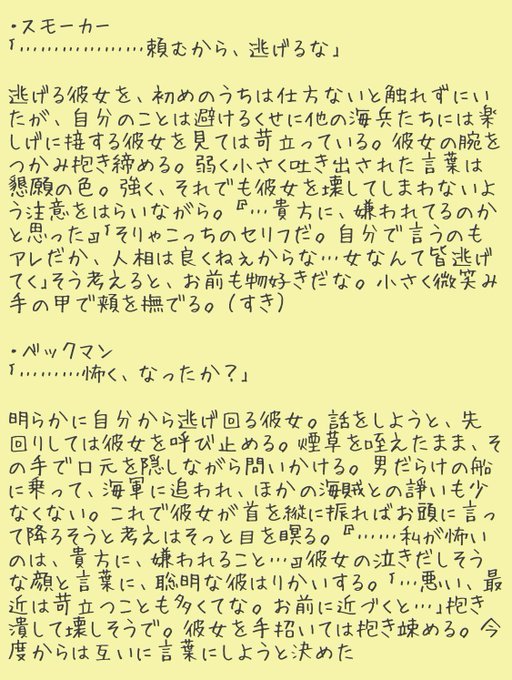 ・スモーカー
「………………頼むから、逃げるな」
逃げる彼女を、初めのうちは仕方ないと触れずにい
たが、自分のことは避けるくせに他の海兵たちには楽
しげに接する彼女を見ては苛立っている。彼女の腕を
つかみ抱き締める。弱く小さく吐き出された言葉は
懇願の色。強く、それでも彼女を壊してしまわないよ
う注意をはらいながら。『…貴方に、嫌われてるのか
と思った』「そりゃこっちのセリフだ。自分で言うのも
アレだか、人相は良くねぇからな…女なんて皆逃げ
てく」そう考えると、お前も物好きだな。小さく微笑み
手の甲で頬を撫でる。(すき)
・ベックマン
「………怖く、なったか？」
明らかに自分から逃げ回る彼女。話をしようと、先
回りしては彼女を呼び止める。煙草を咥えたまま、そ
の手で口元を隠しながら問いかける。男だらけの船
に乗って、海軍に追われ、ほかの海賊との諍いも少
なくない。これで彼女が首を縦に振ればお頭に言っ
て降ろそうと考えはそっと目を瞑る。『……私が怖い
のは、貴方に、嫌われること…』彼女の泣きだしそう
な顔と言葉に、聡明な彼はりかいする。「…悪い、最
近は苛立つことも多くてな。お前に近づくと…」抱き
潰して壊しそうで。彼女を手招いては抱き竦める。今
度からは互いに言葉にしようと決めた